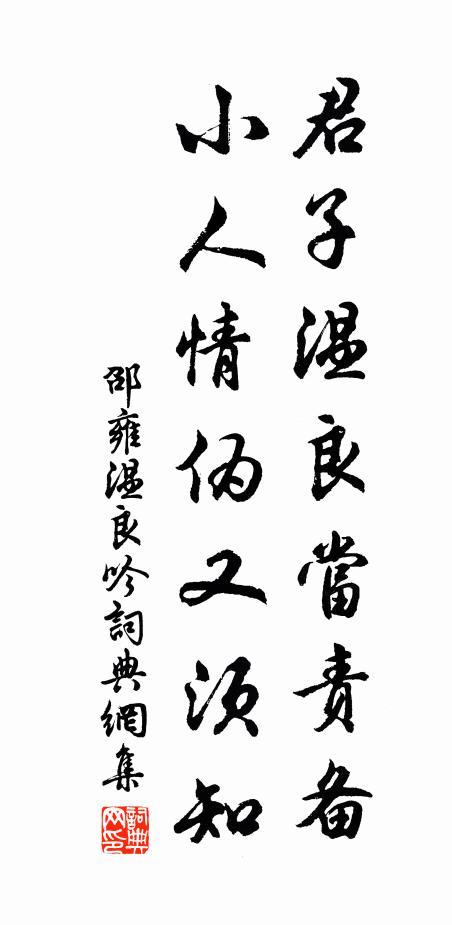 君子温良當責备
小人情伪又須知
邵雍温良吟詞典網集
詞典網印